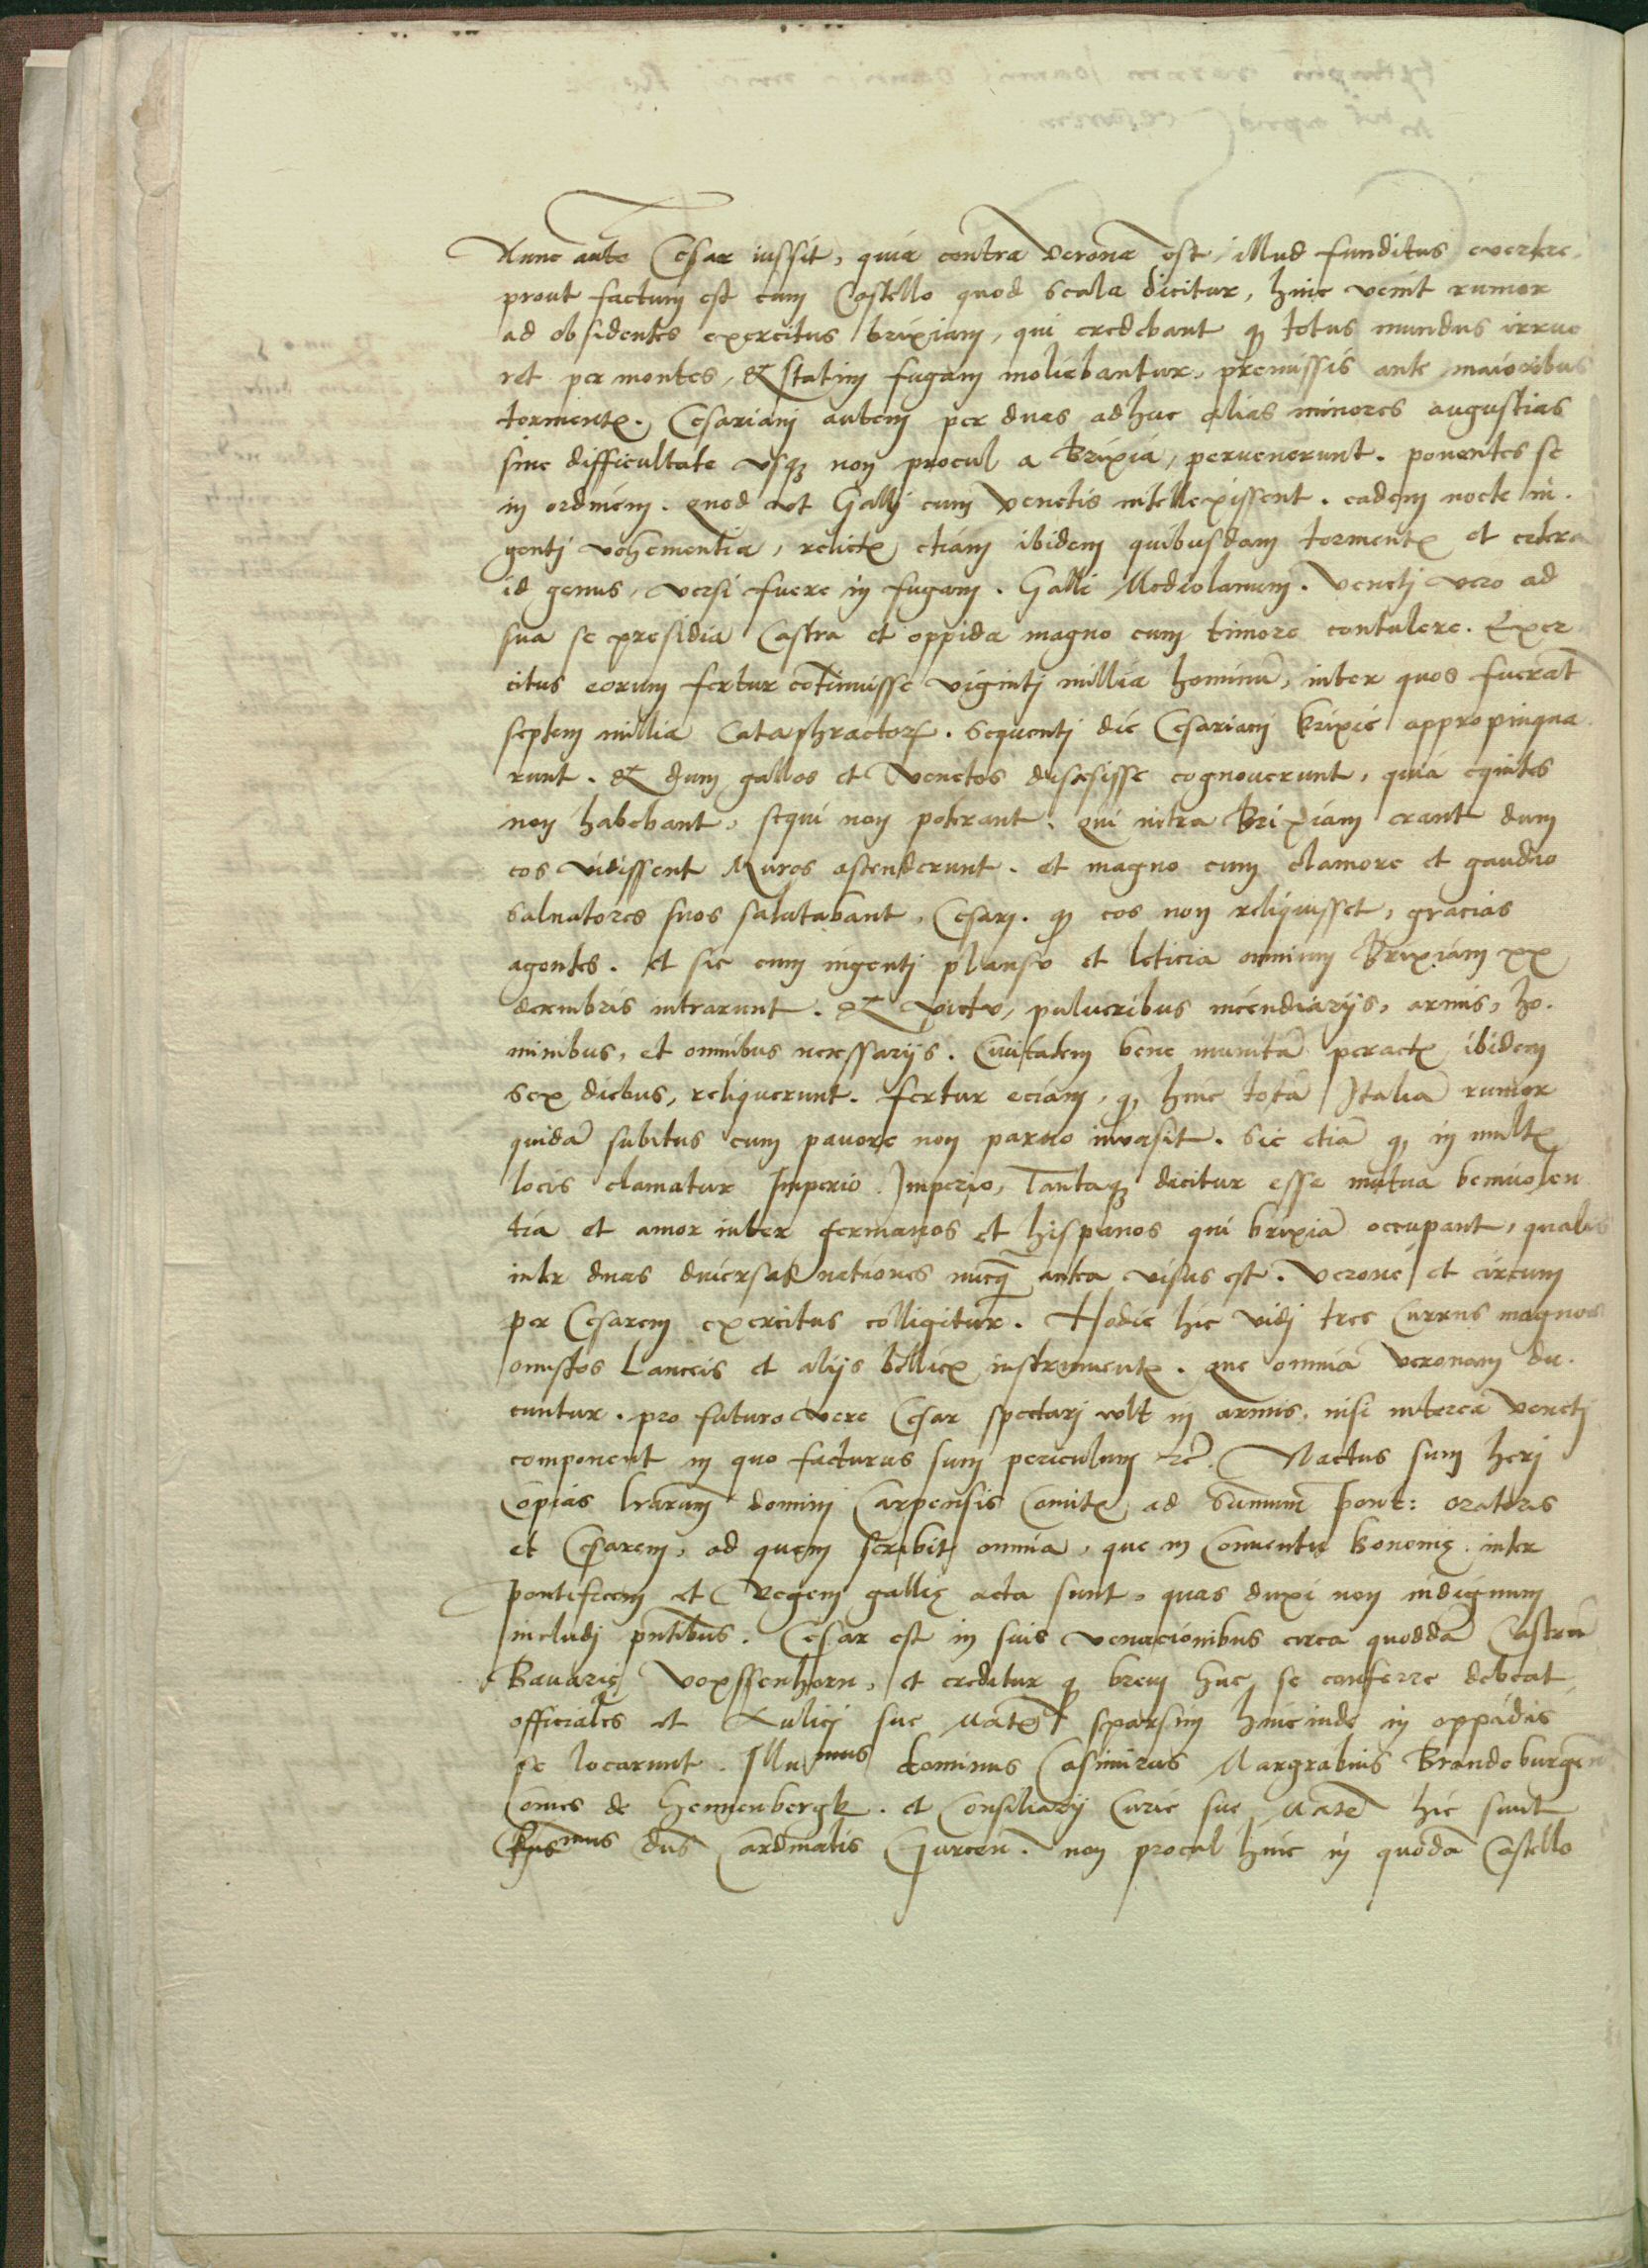 Nunc aute Cesar iussit, quia contra Verona est, illud funditus evertere,
prout factum est cum Castello quod Scala dicitur, hinc venit rumor
ad obsidentes exercitus brixiam, qui credebant qȝ totus mundus irrue
ret per montes, & statim fugam moliebantur, premissis ante maioribus
tormentꝭ. Cesariani autem per duas adhuc alias minores angustias
sine difficultate usqȝ non procul a Brixia, pervenerunt. ponentes se
in ordinem. quod vt Galli cum Venetis intellexissent. eadem nocte in.
genti vehementia, relictꝭ etiam ibidem quibusdam tormentꝭ et cetera
id genus, versi fuere in fugam. Galli Mediolanum. Veneti vero ad
sua se presidia Castra et oppida magno cum timore contulere. Exer
citus eorum fertur cōtinuisse viginti millia hominū, inter quos fuerāt
septem millia Cataphractorꝝ. Sequenti die Cesariani Brixie appropinqua
runt. & dum gallos et Venetos discesisse cognoverunt, quia equites
non habebant, sequi non poterant. Qui intra Brixiam erant dum
eos vidissent Muros ascenderunt. et magno cum clamore et gaudio
salvatores suos salutabant, Cesari. qȝ eos non reliquisset, gracias
agentes. et sic cum ingenti plausu et leticia omnium Brixiam xx
decembris intrarunt. & victu, pulveribus incendiarijs, armis, ho.
minibus, et omnibus necessarijs. Civitatem bene munitā peractꝭ ibidem
sex diebus, reliquerunt. fertur eciam, qȝ hinc totā Italiā rumor
quidā subitus cum pavore non parvo invasit. Sic etiā qȝ in multꝭ
locis clamatur Imperio Imperio, Tantaqȝ dicitur esse mutua benivolen
tia et amor inter germanos et hispanos qui brixiā occupant, qualis
inter duas diversas nationes nūcq̄ antea visus est. Verone et circum
per Cesarem exercitus colligitur. Hodie hic vidi tres Currus magnos
onustos Lanceis et alijs bellicꝭ instrumentꝭ. que omnia Veronam du.
cuntur. pro futuro vere Cesar spectari vult in armis. nisi interea Veneti
component in quo facturus sum periculum etc̄. Nactus sum heri
Copias lrarum domini Carpensis Comitꝭ ad Summū pont: oratoris
et Cesarem, ad quem scribit omnia, que in Conventu Bononie inter
pontificem et Regem gallie acta sunt. quas duxi non indignum
includi pn̄tibus. Cesar est in suis venacionibus circa quoddā Castrū
Bavarie Voxssenhorn, et creditur qȝ brevi huc se conferre debeat
officiales et Aulici sue Matꝭ sparsim hincinde in oppidis
se locarunt. Illumus dominus Casimirus Margrabius Brandeburgen̄
Comes de Hennenbergk. et Consiliarij Curie sue Matꝭ hic sunt
Rmus dn̄s Cardinalis Gurcen̄. non procul hinc in quodā Castello